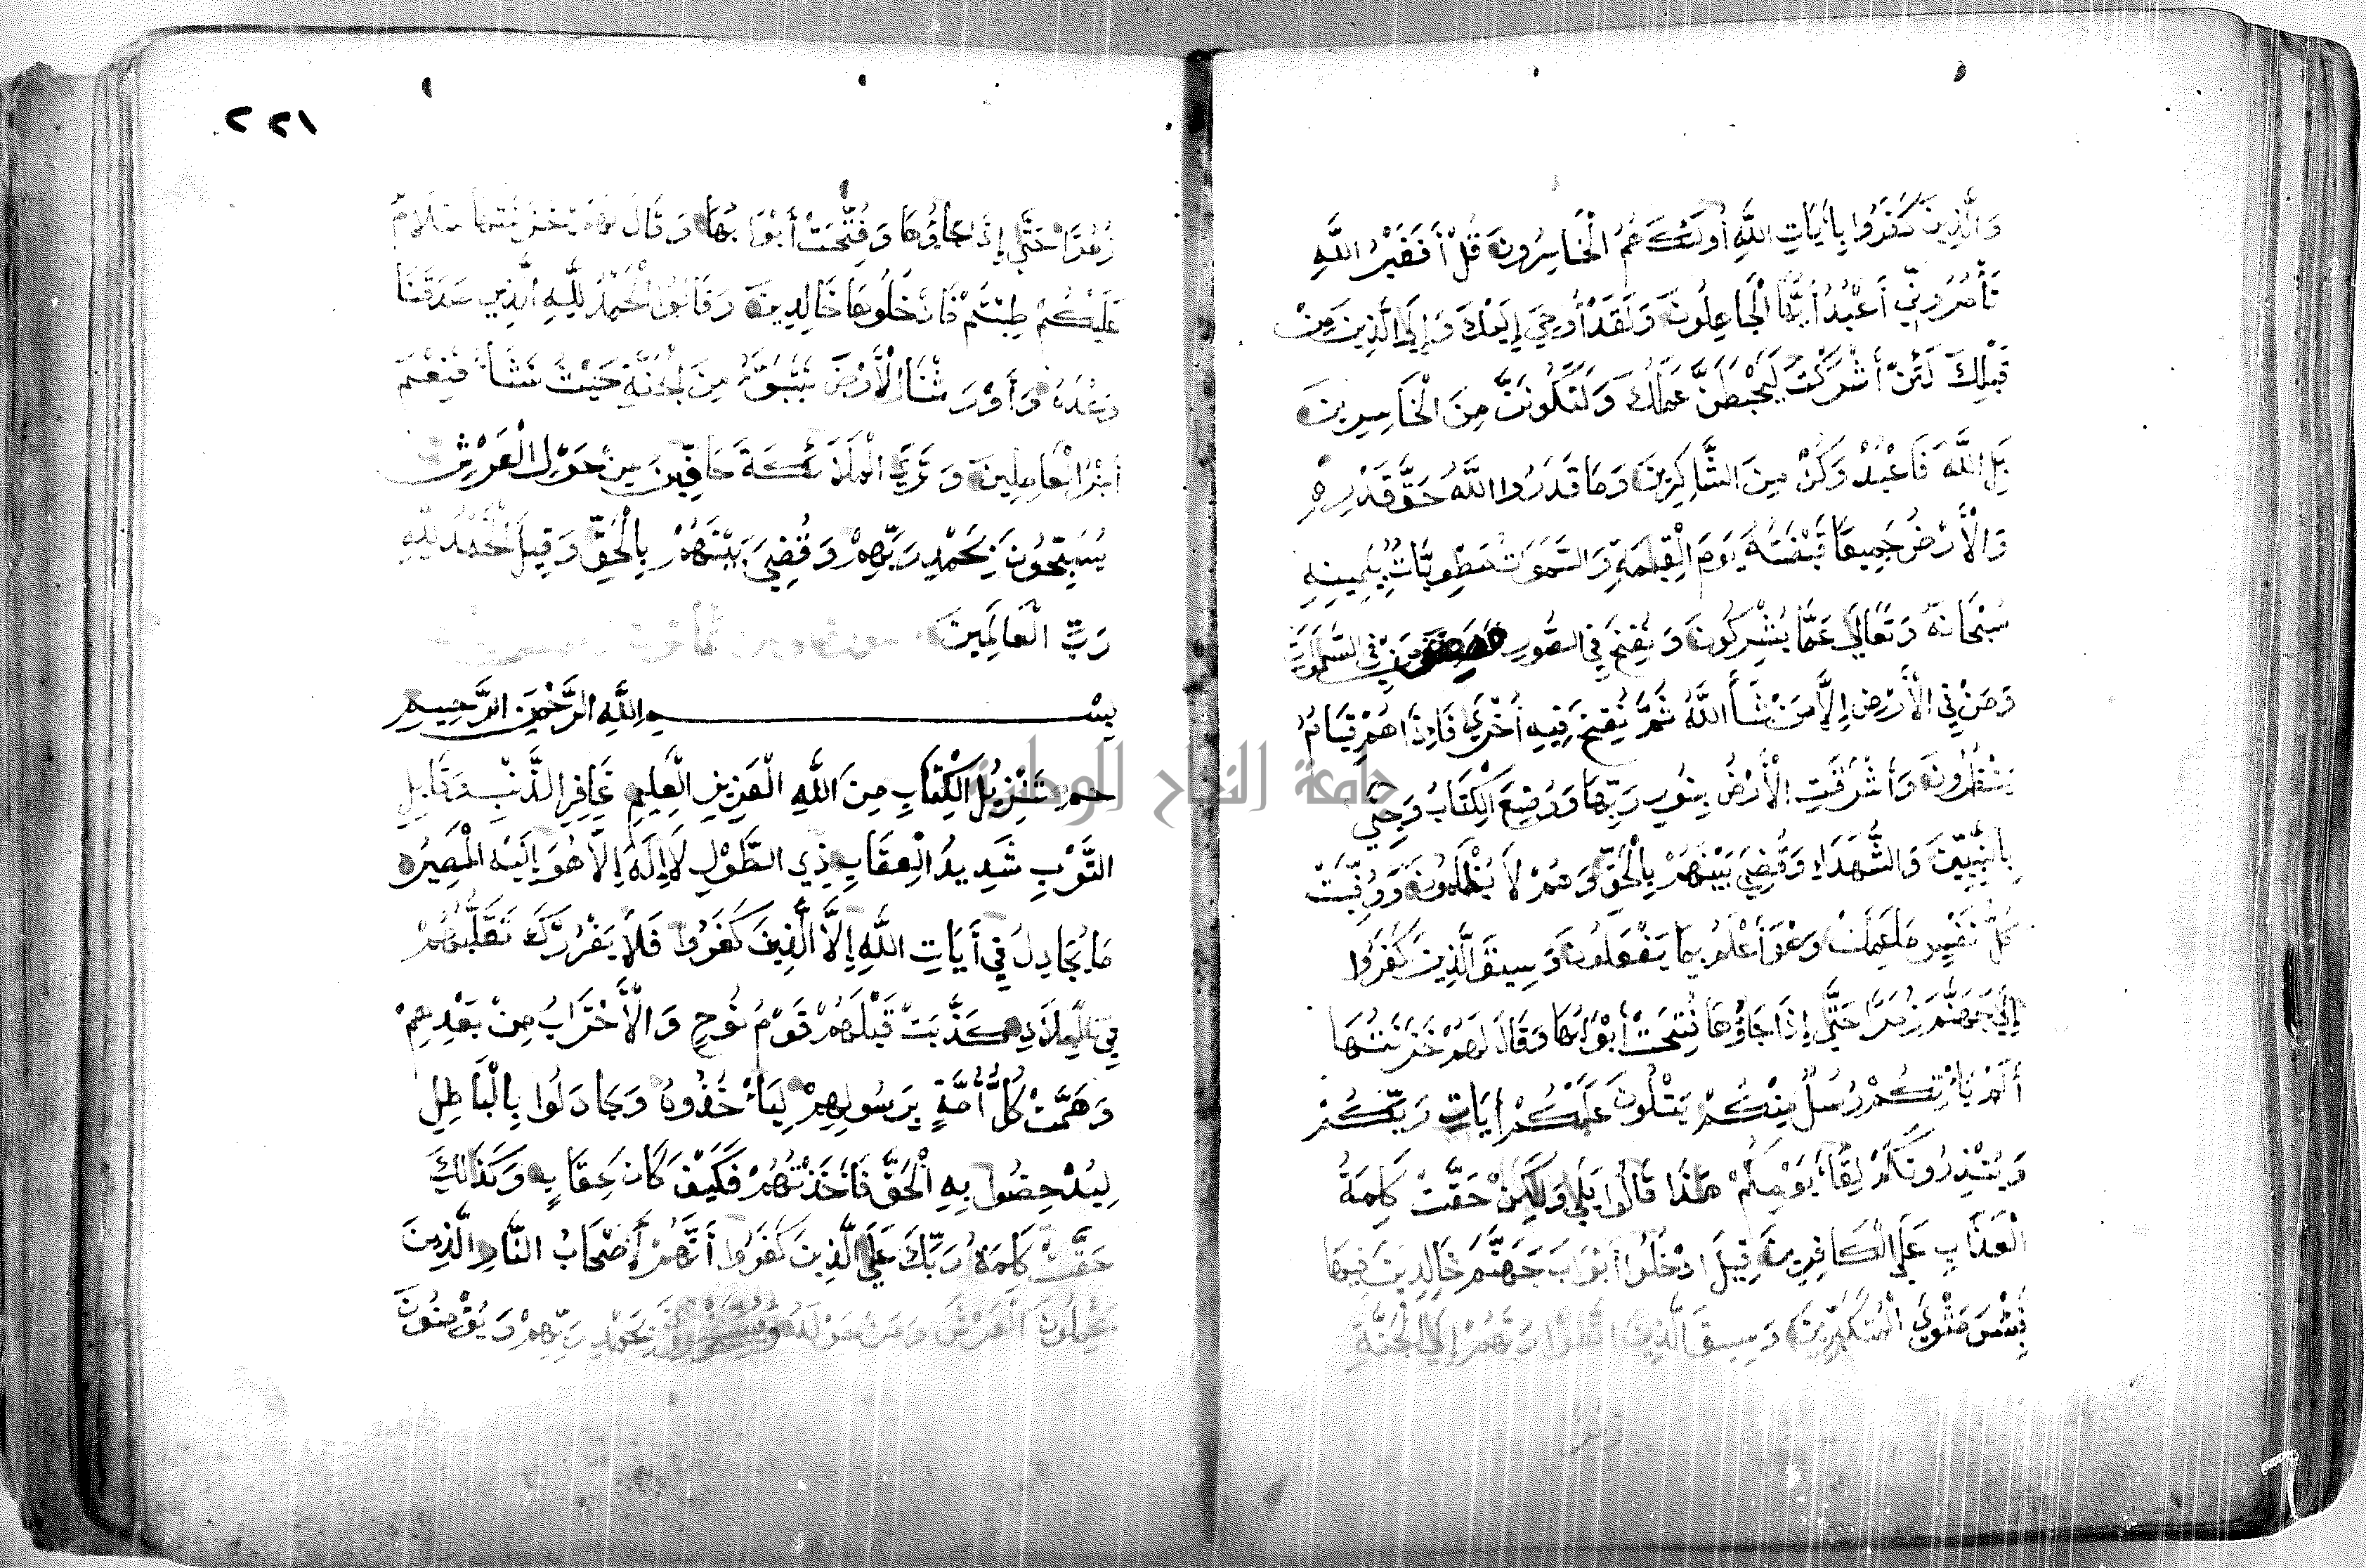 وَالَّذِينَ كَفَرُوا بِأَيَاتِ اللَّهِ أُولَئِكَ هُمُ الْخَاسِرُونَ قُلْ أَفَغَيْرَ اللَّهِ
تَأْمُرُونِّي أَعْبُدُ أَيُّهَا الْجَاهِلُونَ وَلَقَدْ أُوحِيَ إِلَيْكَ وَإِلَى الَّذِينَ مِنْ
قَبْلِكَ لَئِنْ أَشْرَكْتَ لَيَحْبَطَنَّ عَمَلُكَ وَلَتَكُونَنَّ مِنَ الْخَاسِرِينَ
بَلِ اللَّهَ فَاعْبُدْ وَكُنْ مِنَ الشَّاكِرِينَ وَمَا قَدَرُوا اللَّهَ حَقَّ قَدْرِهِ
وَالْأَرْضُ جَمِيعًا قَبْضَتُهُ يَوْمَ الْقِيَمَةِ وَالسَّمَوَاتُ مَطْوِيَّاتٌ بِيَمِينِهِ
سُبْحَانَهُ وَتَعَالَى عَمَّا يُشْرِكُونَ وَنُفِخَ فِي الصُّورِ فَصَعِقَ مَنْ فِي السَّمَوَاتِ
وَمَنْ فِي الْأَرْضِ إِلَّا مَنْ شَاءَ اللَّهُ ثُمَّ نُفِخَ فِيهِ أُخْرَى فَإِذَا هُمْ قِيَامٌ
يَنْظُرُونَ وَأَشْرَقَتِ الْأَرْضُ بِنُورِ رَبِّهَا وَوُضِعَ الْكِتَابُ وَجِيءَ
بِالنَّبِيِّينَ وَالشُّهَدَاءِ وَقُضِيَ بَيْنَهُمْ بِالْحَقِّ وَهُمْ لَا يُظْلَمُونَ وَوُفِّيَتْ
كُلُّ نَفْسٍ مَا عَمِلَتْ وَهُوَ أَعْلَمُ بِمَا يَفْعَلُونَ وَسِيقَ الَّذِينَ كَفَرُوا
إِلَى جَهَنَّمَ زُمَرًا حَتَّى إِذَا جَاؤُهَا فُتِحَتْ أَبْوَابُهَا وَقَالَ لَهُمْ خَزَنَتُهَا
أَلَمْ يَأْتِكُمْ رُسُلٌ مِنْكُمْ يَتْلُونَ عَلَيْكُمْ أَيَاتِ رَبِّكُمْ
وَيُنْذِرُونَكُمْ لِقَاءَ يَوْمِكُمْ هَذَا قَالُوا بَلَى وَلَكِنْ حَقَّتْ كَلِمَةُ
الْعَذَابِ عَلَى الْكَافِرِينَ قِيلَ ادْخُلُوا أَبْوَابَ جَهَنَّمَ خَالِدِينَ فِيهَا
فَبِئْسَ مَثْوَى الْمُتَكَبِّرِينَ وَسِيقَ الَّذِينَ اتَّقَوْا رَبَّهُمْ إِلَى الْجَنَّةِ
٢٢١
زُمَرًا حَتَّى إِذَا جَاؤُهَا وَفُتِحَتْ أَبْوَابُهَا وَقَالَ لَهُمْ خَزَنَتُهَا سَلَامٌ
عَلَيْكُمْ طِبْتُمْ فَادْخُلُوهَا خَالِدِينَ وَقَالُوا الْحَمْدُ لِلَّهِ الَّذِي صَدَقَنَا
وَعْدَهُ وَأَوْرَثَنَا الْأَرْضَ نَتَبَوَّأُ مِنَ الْجَنَّةِ حَيْثُ نَشَاءُ فَنِعْمَ
أَجْرُ الْعَامِلِينَ وَتَرَى الْمَلَائِكَةَ حَافِّينَ مِنْ حَوْلِ الْعَرْشِ
يُسَبِّحُونَ بِحَمْدِ رَبِّهِمْ وَقُضِيَ بَيْنَهُمْ بِالْحَقِّ وَقِيلَ الْحَمْدُ لِلَّهِ
رَبِّ الْعَالَمِينَ
بِسْمِ اللَّهِ الرَّحْمَنِ الرَّحِيمِ
حم تَنْزِيلُ الْكِتَابِ مِنَ اللَّهِ الْعَزِيزِ الْعَلِيمِ غَافِرِ الذَّنْبِ وَقَابِلِ
التَّوْبِ شَدِيدُ الْعِقَابِ ذِي الطَّوْلِ لَا إِلَهَ إِلَّا هُوَ إِلَيْهِ الْمَصِيرُ
مَا يُجَادِلُ فِي أَيَاتِ اللَّهِ إِلَّا الَّذِينَ كَفَرُوا فَلَا يَغْرُرْكَ تَقَلُّبُهُمْ
فِي الْبِلَادِ كَذَّبَتْ قَبْلَهُمْ قَوْمُ نُوحٍ وَالْأَحْزَابُ مِنْ بَعْدِهِمْ
وَهَمَّتْ كُلُّ أُمَّةٍ بِرَسُولِهِمْ لِيَأْخُذُوهُ وَجَادَلُوا بِالْبَاطِلِ
لِيُدْحِضُوا بِهِ الْحَقَّ فَأَخَذْتُهُمْ فَكَيْفَ كَانَ عِقَابِ وَكَذَالِكَ
حَقَّتْ كَلِمَةُ رَبِّكَ عَلَى الَّذِينَ كَفَرُوا أَنَّهُمْ أَصْحَابُ النَّارِ الَّذِينَ
يَحْمِلُونَ الْعَرْشَ وَمَنْ حَوْلَهُ يُسَبِّحُونَ بِحَمْدِ رَبِّهِمْ وَيُؤْمِنُونَ
جامعة النجاح الوطنية